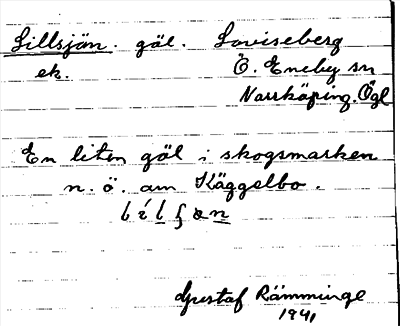 Lillsjön. göl. Loviseberg
ek. Ö. Eneby sn
Norrköping. Ögl
En liten göl i skogsmarken
n. ö. om Häggelbo.
Gustaf Rämminge
1941